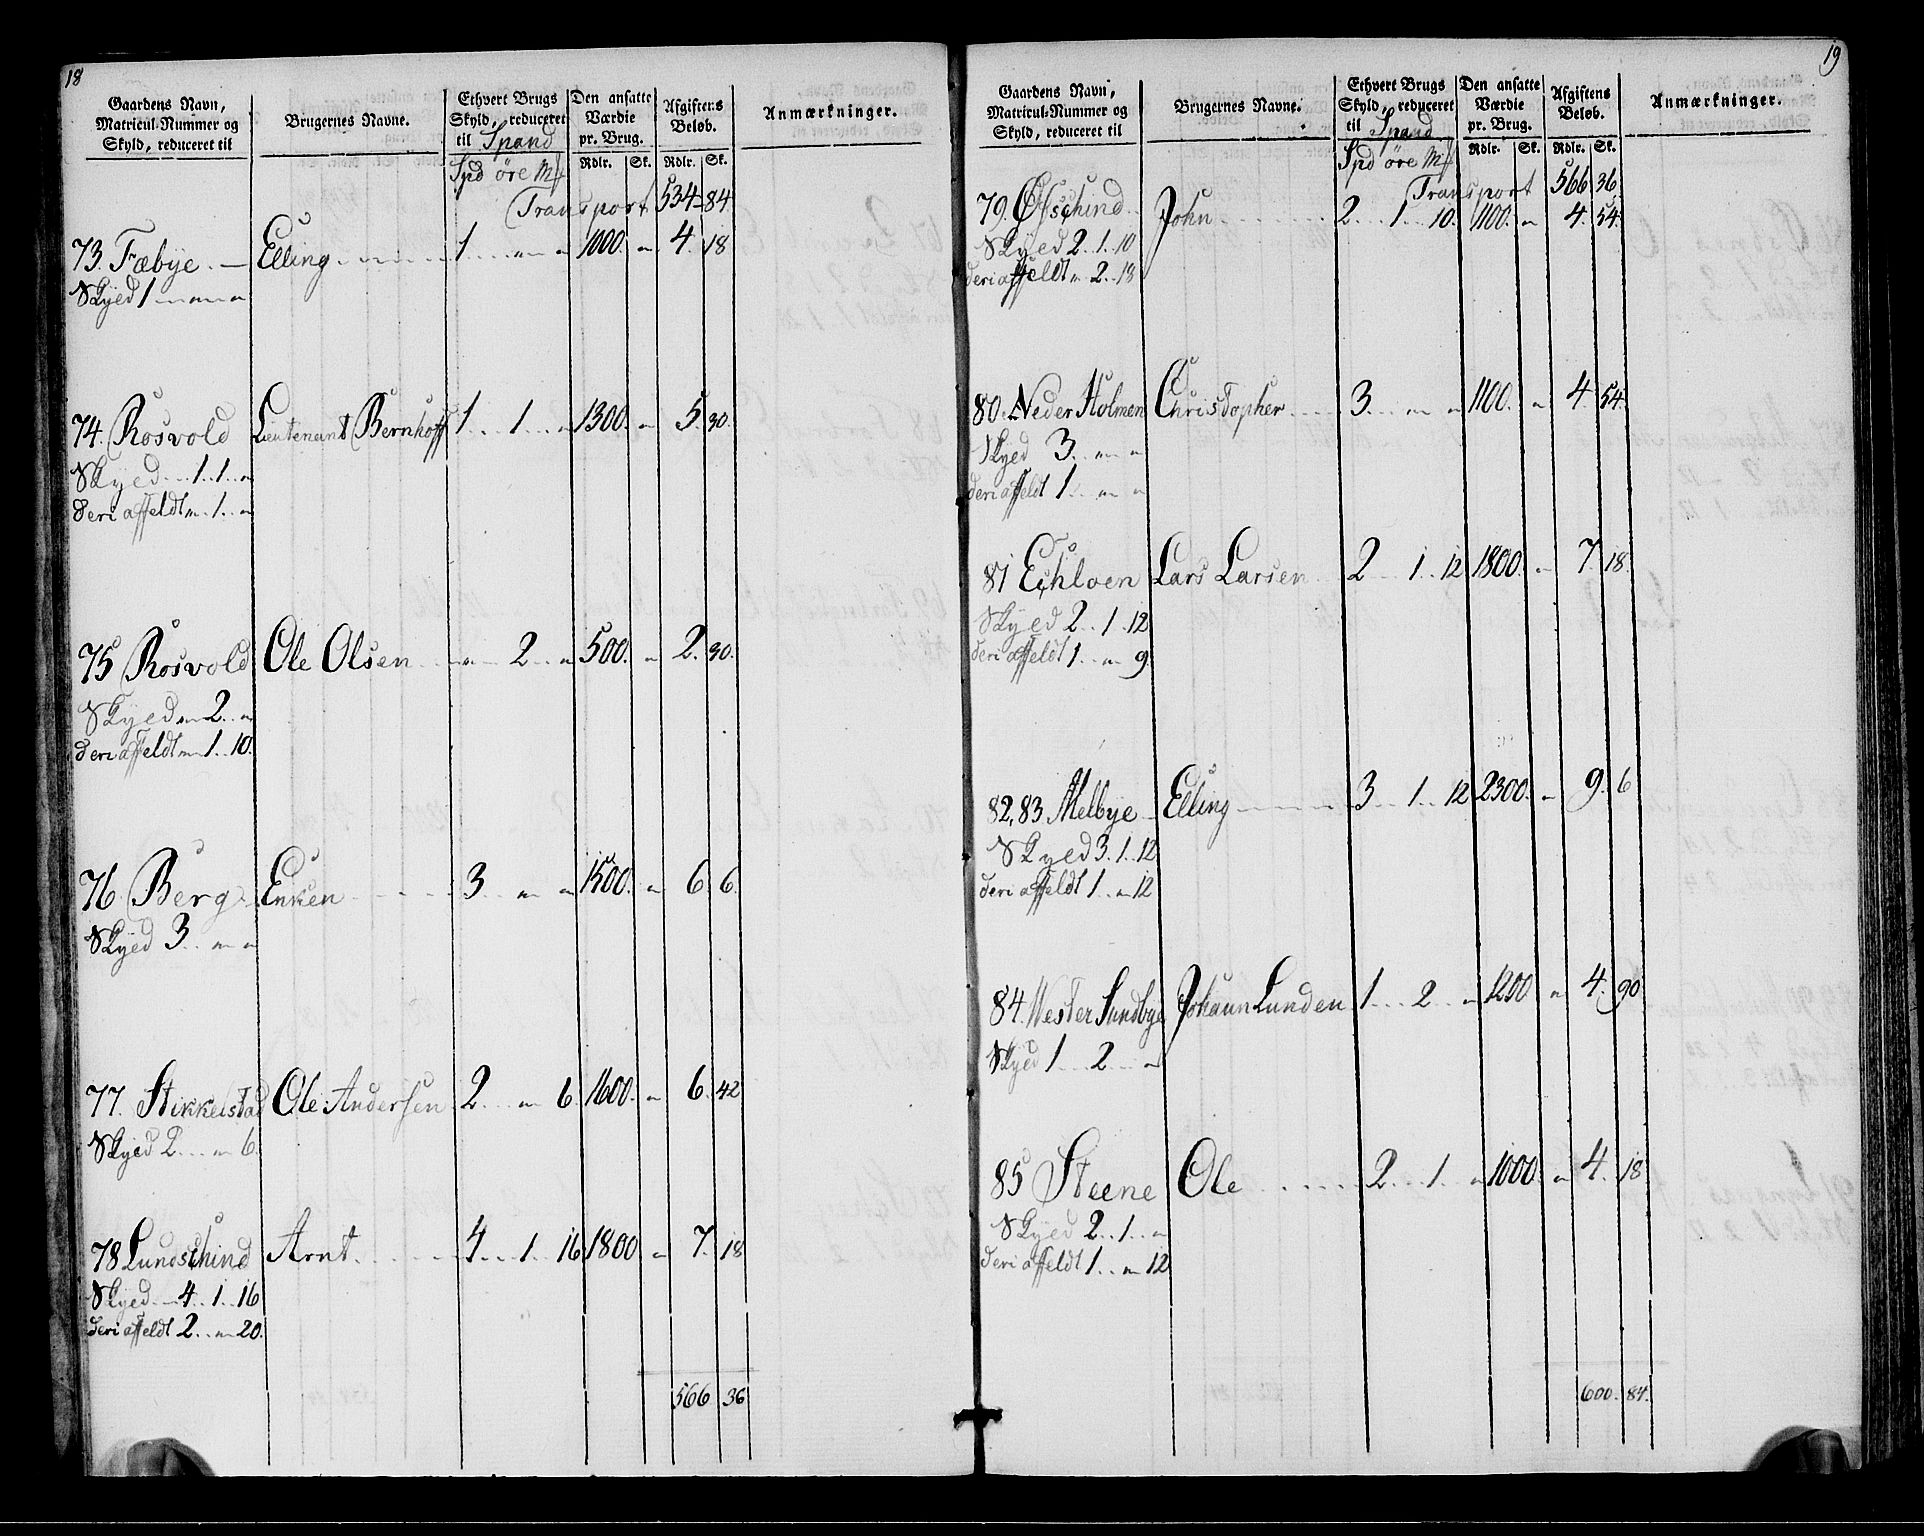 18
Gaardens Navn, Matricul-Nummer og Skyld, reduceret til | Brugernes Navne. | Ethvert Brugs Skyld, reduceret til Spand | Den ansatte Værdie pr. Brug. | Afgiftens Beløb. | Anmærkninger.
Spd öre Mk | Rdlr. | Sk. | Rdlr. | Sk.
Transport 534 84
73. Fæbye Elling 1 „ „ 1000. „ 4. 18
Skyed 1 „ „
74. Rosvold Lieutenant Bernhoff 1 1 „ 1300. „ 5. 30.
Skyed 1..1..„
deri affeldt „ 1..„
75 Rosvold Ole Olsen „ 2 „ 500. „ 2. 30.
Skyed „ 2..„
deri affeldt „ 1..10.
76 Berg Enken 3 „ „ 1500. „ 6. 6.
Skyed 3..„ „
77. Stikkelstad Ole Andersen 2 „ 6. 1600. „ 6. 42
Skyed 2...„ 6.
78 Lundschind Arnt 4 1 16 1800 „ 7. 18
Skyed 4..1..16
deri affeldt 2..„ 20.
566 36
19
Gaardens Navn, Matricul-Nummer og Skyld, reduceret til | Brugernes Navne. | Ethvert Brugs Skyld, reduceret til Spand | Den ansatte Værdie pr. Brug. | Afgiftens Beløb. | Anmærkninger.
Spd öre Mk | Rdlr. | Sk. | Rdlr. | Sk.
Transport 566 36
79. John 2 1 10. 1100. „ 4. 54.
Skyed 2..1..10
deri affeldt „ 2..18
80. Neder Holmen Christopher 3 „ „ 1100. „ 4. 54.
Skyed 3...„ „
deri affeldt 1..„ „
81 Echloen Lars Larsen 2 1 12 1800. „ 7. 18.
Skyed 2..1..12
deri affeldt 1..„ 9.
82, 83 Melbye Elling 3 1 12 2300. „ 9. 6
Skyed 3..1..12
deri affeldt 1..„ 12
84. Wester Sundbye Johann Lunden 1 2 „ 1200 „ 4. 90.
Skyed 1...2...„
85 Steene Ole 2 1 „ 1000. „ 4. 18
Skyed 2..1..„
deri affeldt 1..„ 12
600. 84.